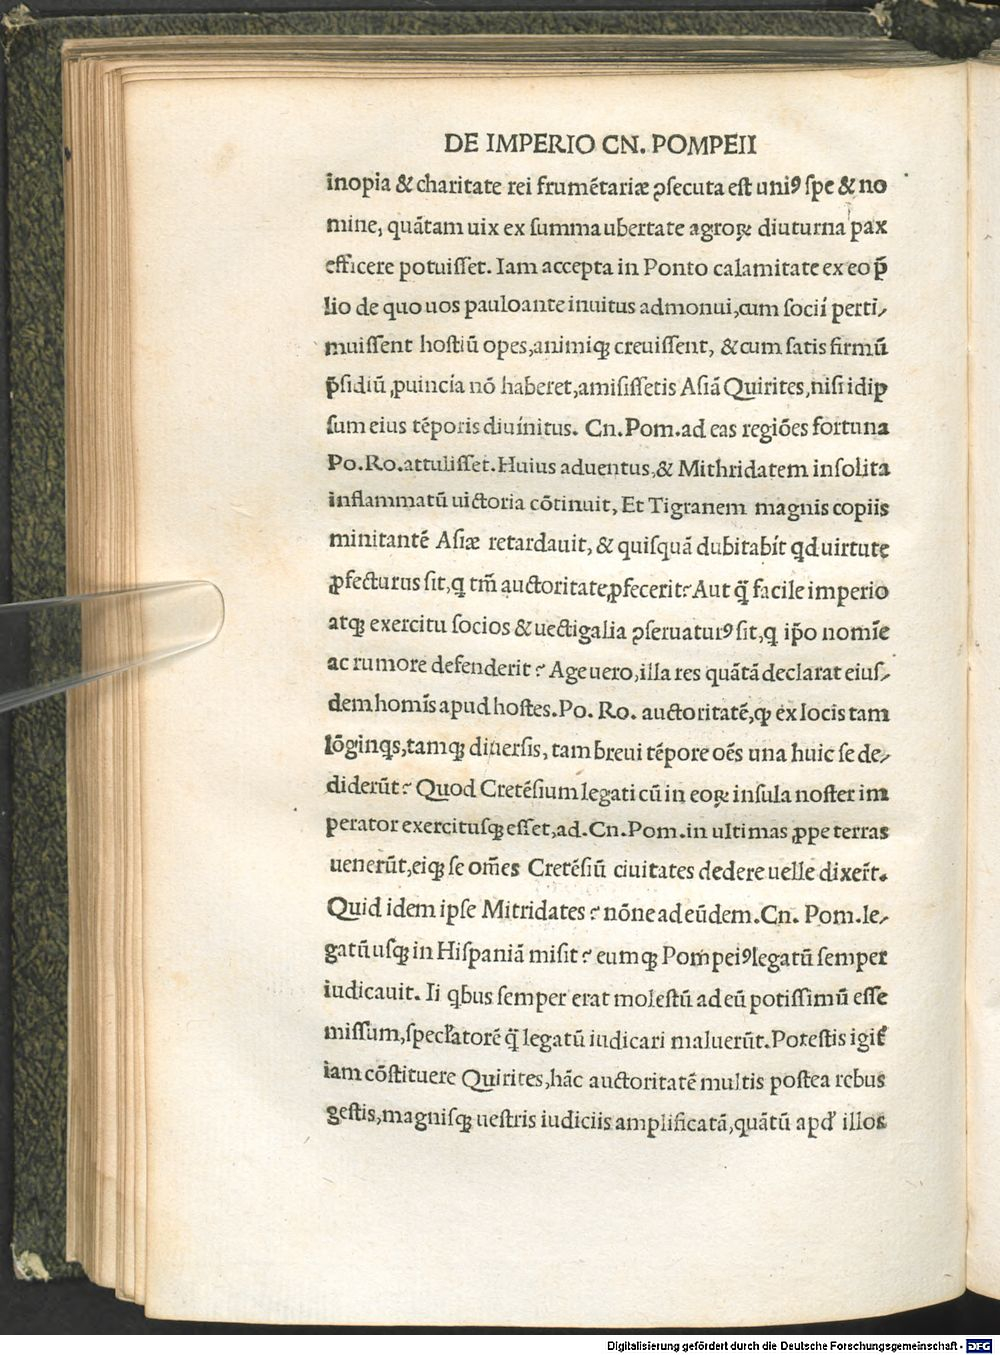 DE IMPERIO CN. POMPEII
inopia & charitate rei frumētariæ ꝯsecuta est uniꝰ spe & no
mine, quātam uix ex summa ubertate agroꝝ diuturna pax
efficere potuisset. Iam accepta in Ponto calamitate ex eo p̄
lio de quo uos pauloante inuitus admonui,cum socii perti,
muissent hostiū opes,animiqꝫ creuissent, & cum satis firmū
p̄sidiū ꝓuincia nō haberet,amisissetis Asiā Quirites,nisi idip
sum eius tēporis diuinitus. Cn.Pom.ad eas regiōes fortuna
Po.Ro.attulisset.Huius aduentus,& Mithridatem insolita
inflammatū uictoria cōtinuit, Et Tigranem magnis copiis
minitantē Asiæ retardauit, & quisquā dubitabit qd uirtute
ꝓfecturus sit,q tm̄ auctoritate ꝓfecerit? Aut q̄ facile imperio
atqꝫ exercitu socios & uectigalia ꝯseruaturꝰ sit,q ip̄o nomīe
ac rumore defenderit? Age uero,illa res quātā declarat eius,
dem homīs apud hostes.Po. Ro. auctoritatē,ꝙ ex locis tam
lōginqs,tamqꝫ diuersis, tam breui tēpore oēs una huic se de,
diderūt? Quod Cretēsium legati cū in eoꝝ insula noster im
perator exercitusqꝫ esset,ad.Cn.Pom.in ultimas ꝓpe terras
uenerūt,eiqꝫ se om̄es Cretēsiū ciuitates dedere uelle dixer̄t.
Quid idem ipse Mitridates? nōne ad eūdem.Cn. Pom.le,
gatū usqꝫ in Hispaniā misit? eumqꝫ Pompeiꝰ legatū semper
iudicauit. Ii qbus semper erat molestū ad eū potissimū esse
missum,spectatorē q̄ legatū iudicari maluerūt.Potestis igit̄
iam cōstituere Quirites,hāc auctoritatē multis postea rebus
gestis,magnisqꝫ uestris iudiciis amplificatā,quātū apd' illos
Digitalisierung gefördert durch die Deutsche Forschungsgemeinschaft - DFG